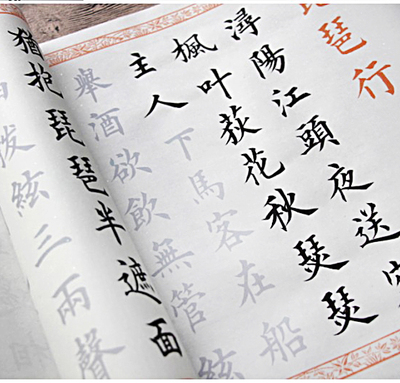 琵琶行
潯陽江頭夜送
楓叶荻花秋瑟瑟
主人下馬客在船
舉酒欲飲無管絃
猶抱琵琶半遮面
撥絃三兩聲